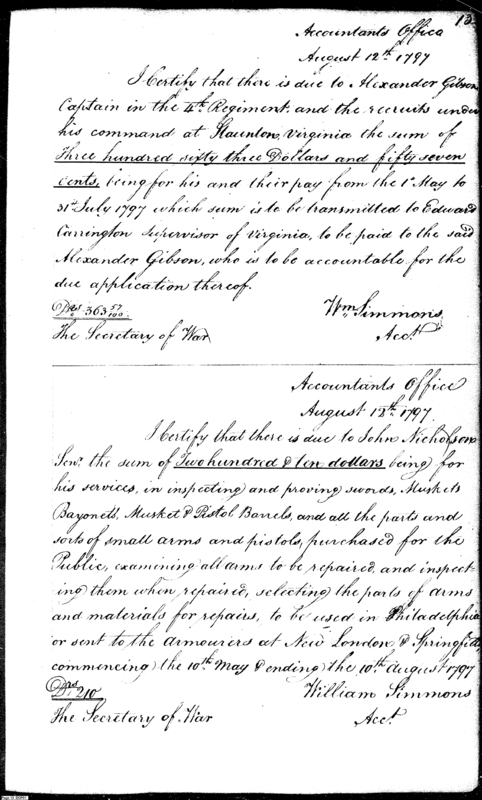 13
Accountants Office
August 12th. 1797
I Certify that there is due to Alexander Gibson
Captain in the 4th. Regiment. and the recruits under
his command at Staunton, Virginia the sum of
Three hundred sixty three Dollars and fifty seven
cents, being for his and their pay from the 1st May to
31st July 1797 which sum is to be transmitted to Edward
Carrington Supervisor of Virginia, to be paid to the said
Alexander Gibson, who is to be accountable for the
due application thereof.
Drs 363 57/100.
Wm. Simmons
The Secretary of War
Acct.
Accountants Office
August 12th. 1797.
I Certify that there is due to John Nicholson
Senr. the sum of Two hundred & ten dollars being for
his services, in inspecting and proving swords, Muskets
Bayonetts, Musket & Pistol Barrels, and all the parts and
sorts of small arms and pistols, purchased for the
Public, examining all arms to be repaired, and inspect-
ing them when repaired, selecting the parts of arms
and materials for repairs, to be used in Philadelphia
or sent to the armourers at New London & Springfield
commencing the 10th. May & ending the 10th. August 1797
Drs. 210
William Simmons
The Secretary of War
Acct.